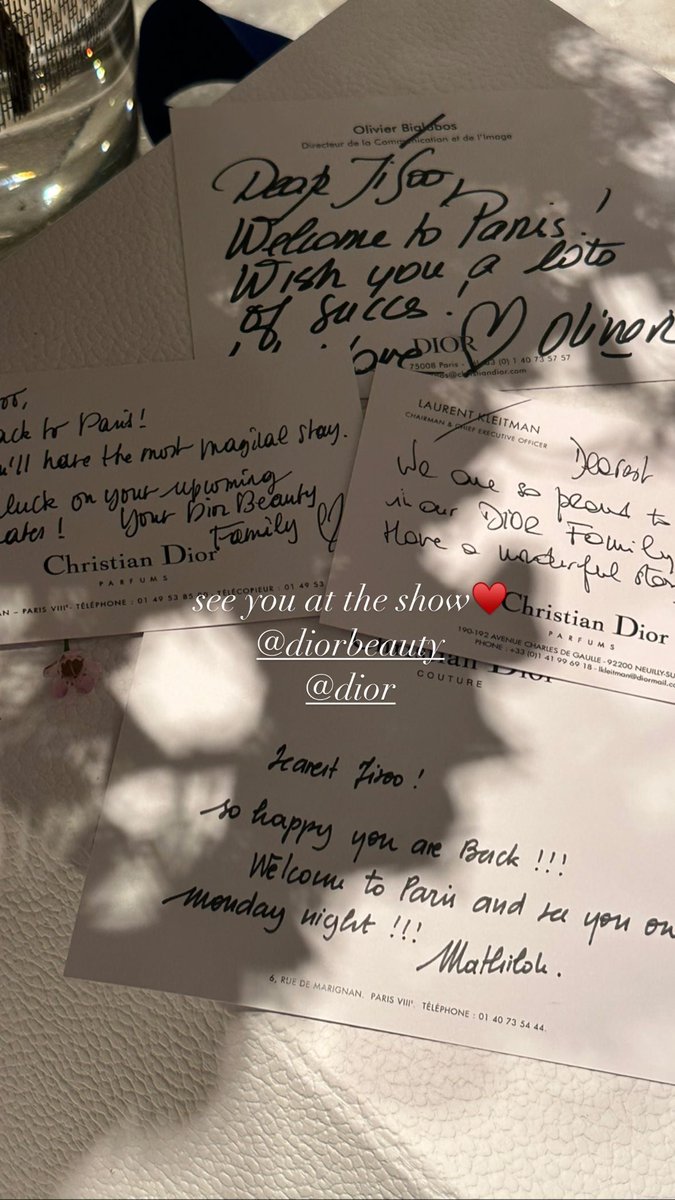 Olivier Bialobos
Directeur de la Communication et de l'Image
Dear JiSoo,
Welcome to Paris!
Wish you a lots
of succes!
Love Olivier
DIOR
75008 Paris - 33 (0) 1 40 73 57 57
@christiandior.com
oo,
ack to Paris!
'll have the most magical stay.
luck on your upcoming
ates! Your Dior Beauty
Family
Christian Dior
PARFUMS
AN – PARIS VIIIᵉ. TÉLÉPHONE : 01 49 53 85 TÉLÉCOPIEUR : 01 49 53
LAURENT KLEITMAN
CHAIRMAN & CHIEF EXECUTIVE OFFICER
Dearest
We are so proud to
in our DIOR Family
Have a wonderful stay
Christian Dior
PARFUMS
190-192 AVENUE CHARLES DE GAULLE - 92200 NEUILLY-SU
PHONE : +33 (0)1 41 99 69 18 - lkleitman@diormail.co
see you at the show❤️
@diorbeauty
@dior
Christian Dior
COUTURE
Dearest Jisoo!
So happy you are Back !!!
Welcome to Paris and see you on
monday night !!!
Mathilde.
6, RUE DE MARIGNAN. PARIS VIIIᵉ. TÉLÉPHONE : 01 40 73 54 44.